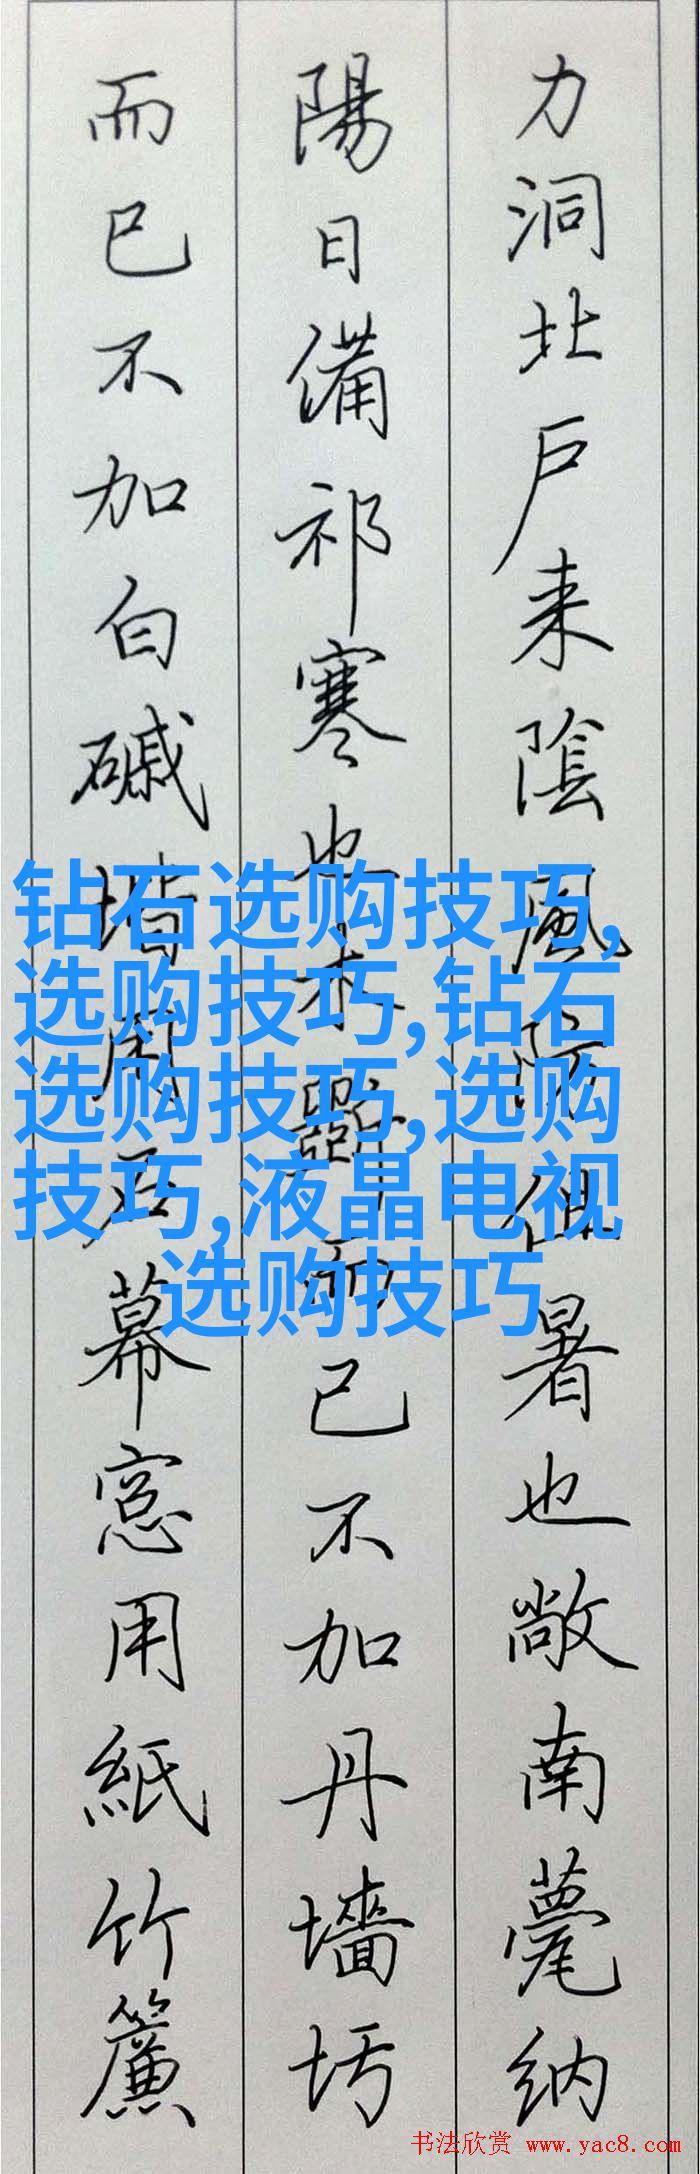 力洞北戶来陰風防徂暑也敞南甍纳
陽日備祁寒也木斲而已不加丹墻圬
而已不加白磩堦用石幕窓用紙竹簾
钻石选购技巧,
选购技巧,钻石
选购技巧,选购
技巧,液晶电视
选购技巧
书法欣赏 www.yac8.com